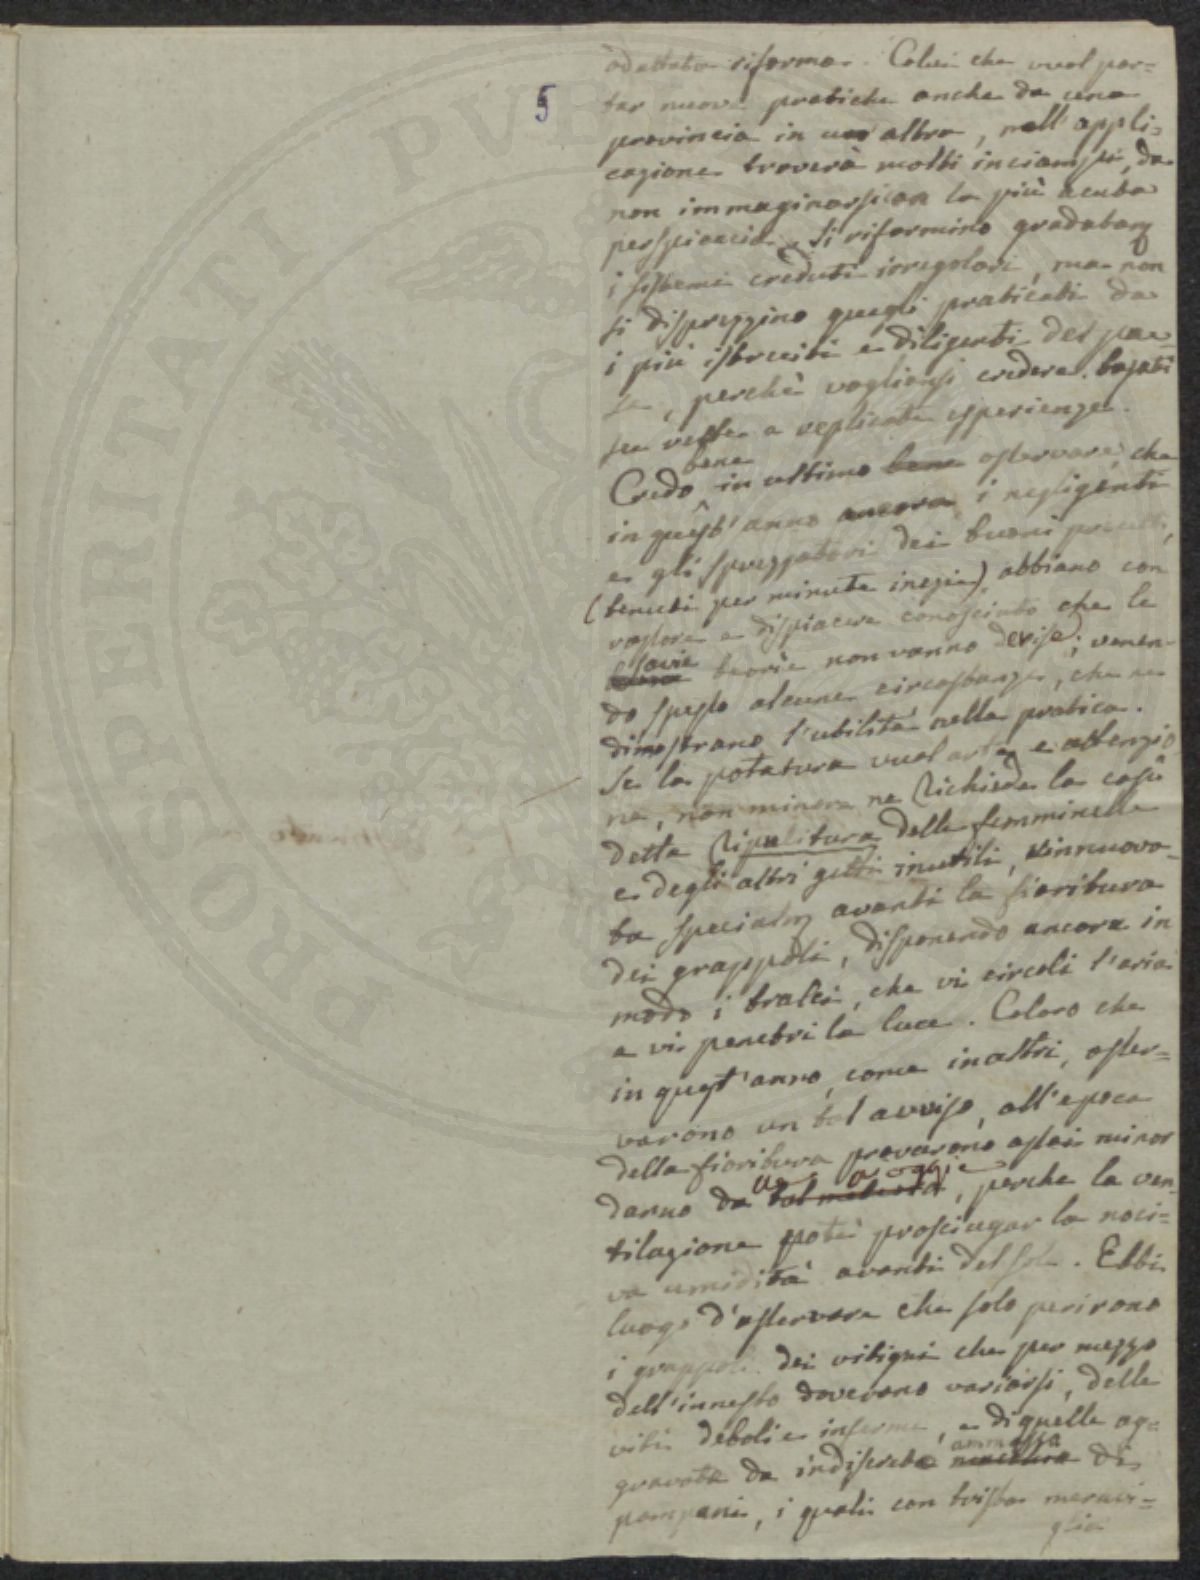 5
adattata riforma. Colui che vuol por=
tar nuove pratiche anche da una
provincia in un'altra, nell'appli=
cazione troverà molti inciampi, da
non immaginarsi con la più acuta
perspicacia. Si riformino gradatam
i sistemi creduti irregolari, ma non
si disprezzino quegli praticati da
i più istruiti e diligenti del pae=
se, perchè vogliansi credere basati
su vaste e replicate esperienze.
bene
Credo in ultimo bene osservare, che
in quest'anno ancora i negligenti
e gli sprezzatori dei buoni precetti,
(tenuti per minute inezie) abbiano con
rossore e dispiacere conosciuto che le
savie
teorie non vanno derise; venen=
do spesso alcune circostanze, che ne
dimostrano l'utilità nella pratica.
Se la potatura vuol arte e attenzio=
ne, non minore ne richiede la così
detta ripulitura delle femminelle
e degli altri getti inutili, rinnuova=
ta specialm avanti la fioritura
dei grappoli, disponendo ancora in
modo i tralci, che vi circoli l'aria
e vi penetri la luce. Coloro che
in quest'anno, come in altri, osser=
varono un tal avviso, all'epoca
della fioritura provarono assai minor
pioggie
danno da tal meteora, perche la ven=
tilazione potè prosciugar la noci=
va umidità avanti del sole. Ebbi
luogo d'osservare che solo perirono
i grappoli dei vitigni che per mezzo
dell'innesto dovevano variarsi, delle
viti deboli e inferme, e di quelle ag=
ammassa
gravate da indiscreta di
pampani, i quali con trista meravi=
glia
PROSPERITATI PVB